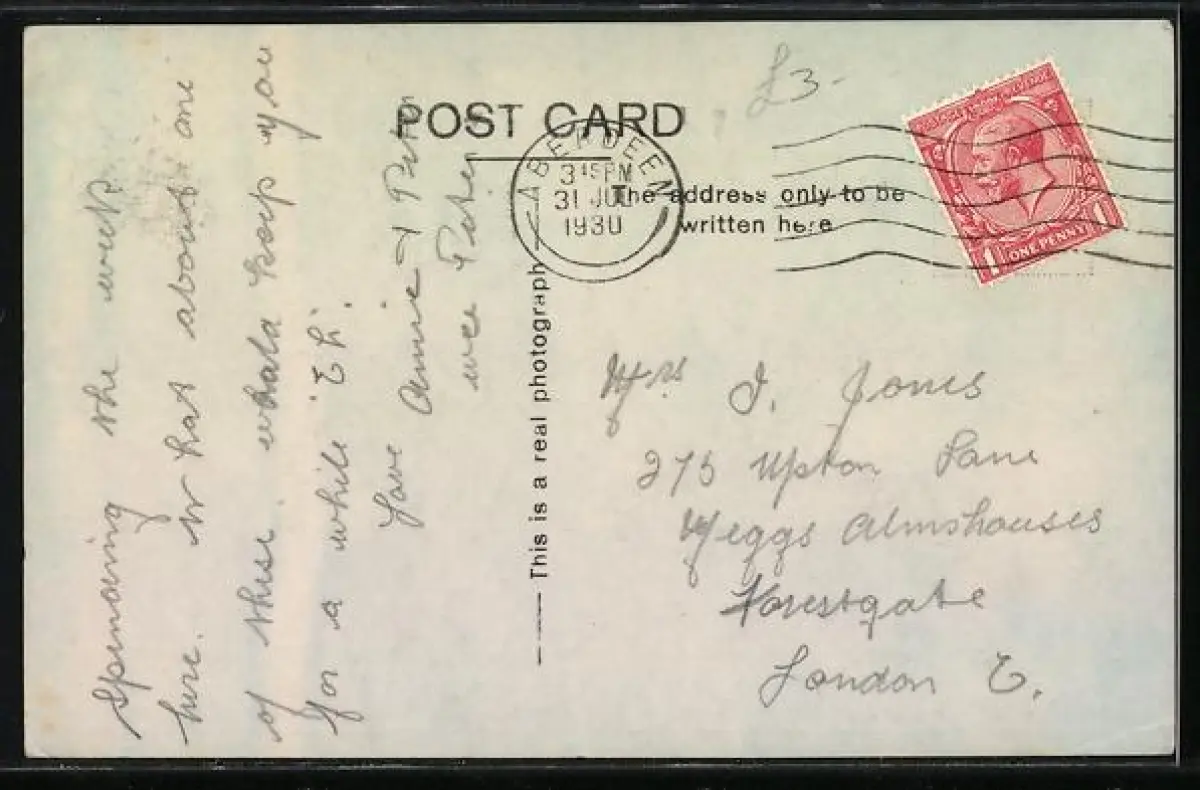 Spending the week
here. What about one
of these. Would keep you
for a while 'Eh'.
Love Annie & Peter
wee Peter
POST CARD
The address only to be
written here
This is a real photograph
£3-
ABERDEEN
3 15 PM
31 JUL
1930
POSTAGE REVENUE
1 ONE PENNY 1
Mrs J. Jones
275 Upton Lane
Meggs Almshouses
Forestgate
London E.